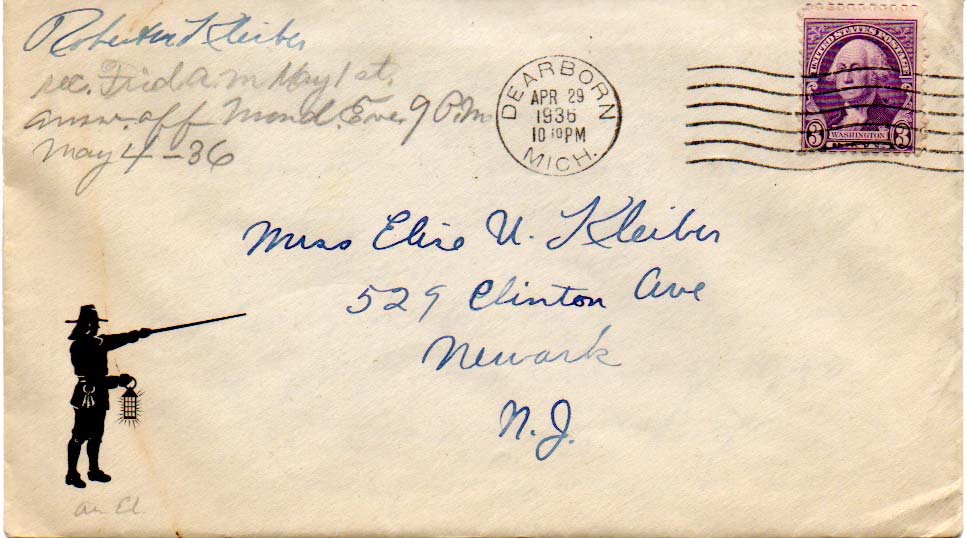 Kleiber
rec. Frid. a.m May 1st.
answ. off Mond. Eve. 9 P.M
May 4-36
DEARBORN
APR 29
1936
10 30 PM
MICH.
UNITED STATES POSTAGE
3 WASHINGTON 3
Miss Elise U. Kleiber
529 Clinton Ave
Newark
N.J.